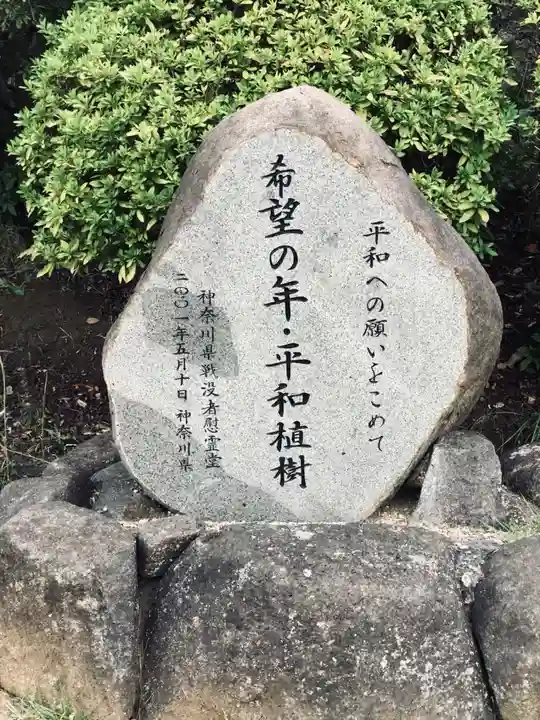 平和への願いをこめて
希望の年・平和植樹
神奈川県戦没者慰霊堂
二〇〇一年五月十日 神奈川県